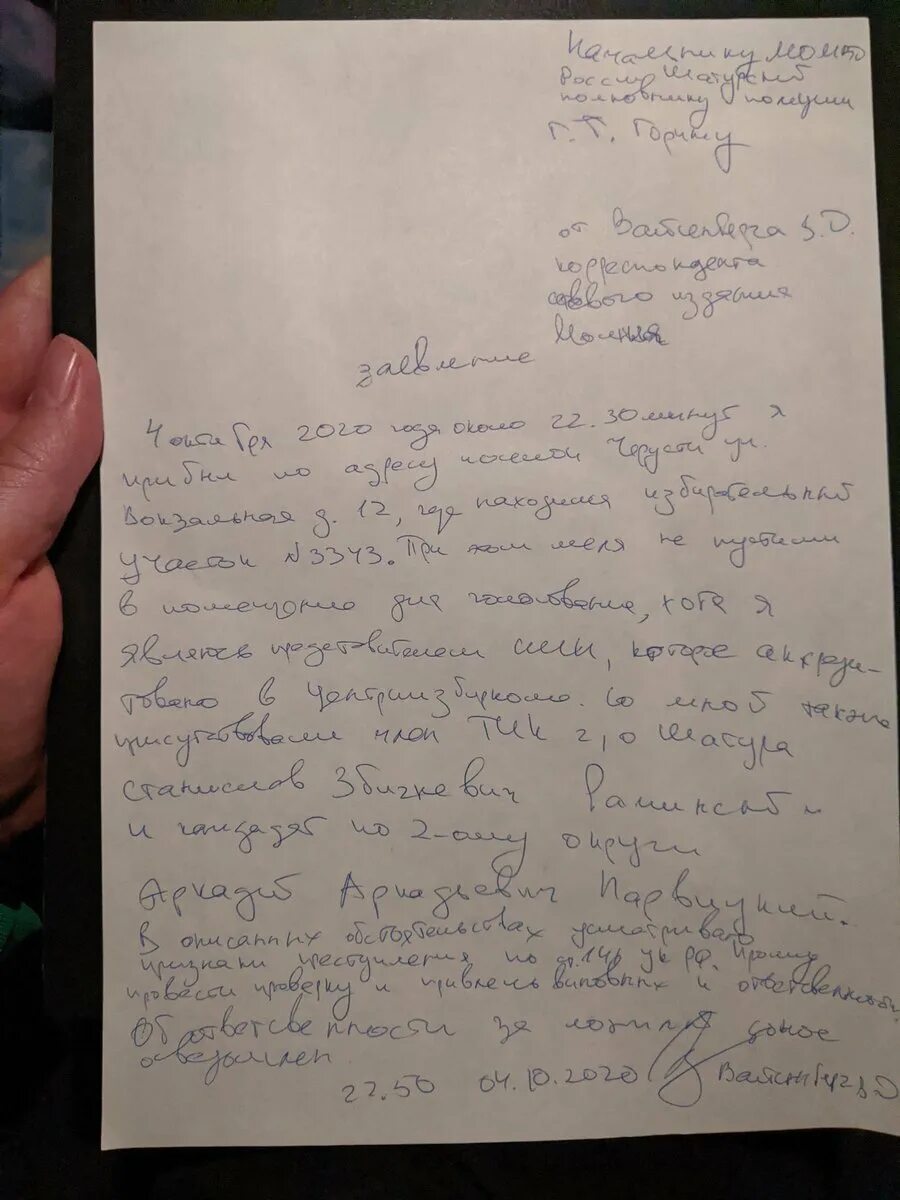 Начальнику МОМВД
России Шатурский
полковнику полиции
Г. Т.
от Вайсенберга З.Д.
корреспондента
сетевого издания
Молния
заевление
4 октября 2020 года около 22.30 минут я
прибыл по адресу поселок Черусти ул.
Вокзальная д. 12, где находился избирательный
участок №3343. При этом меня не пустили
в помещение для голосования, хотя я
являюсь представителем СМИ, которое аккреди-
товано в Центризбиркоме. Со мной также
присутствовали член ТИК г, о Шатура
Станислов Збигневич
и кандидат по 2-ому округу
Аркадий Аркадьевич
В описанных обстоятельствах усматриваю
признаки преступления по УК РФ. Прошу
провести проверку и привлечь виновных к ответственности
Об ответственности за ложный донос
осведомлен
22.50 04.10.2020 Вайсенберг З.Д